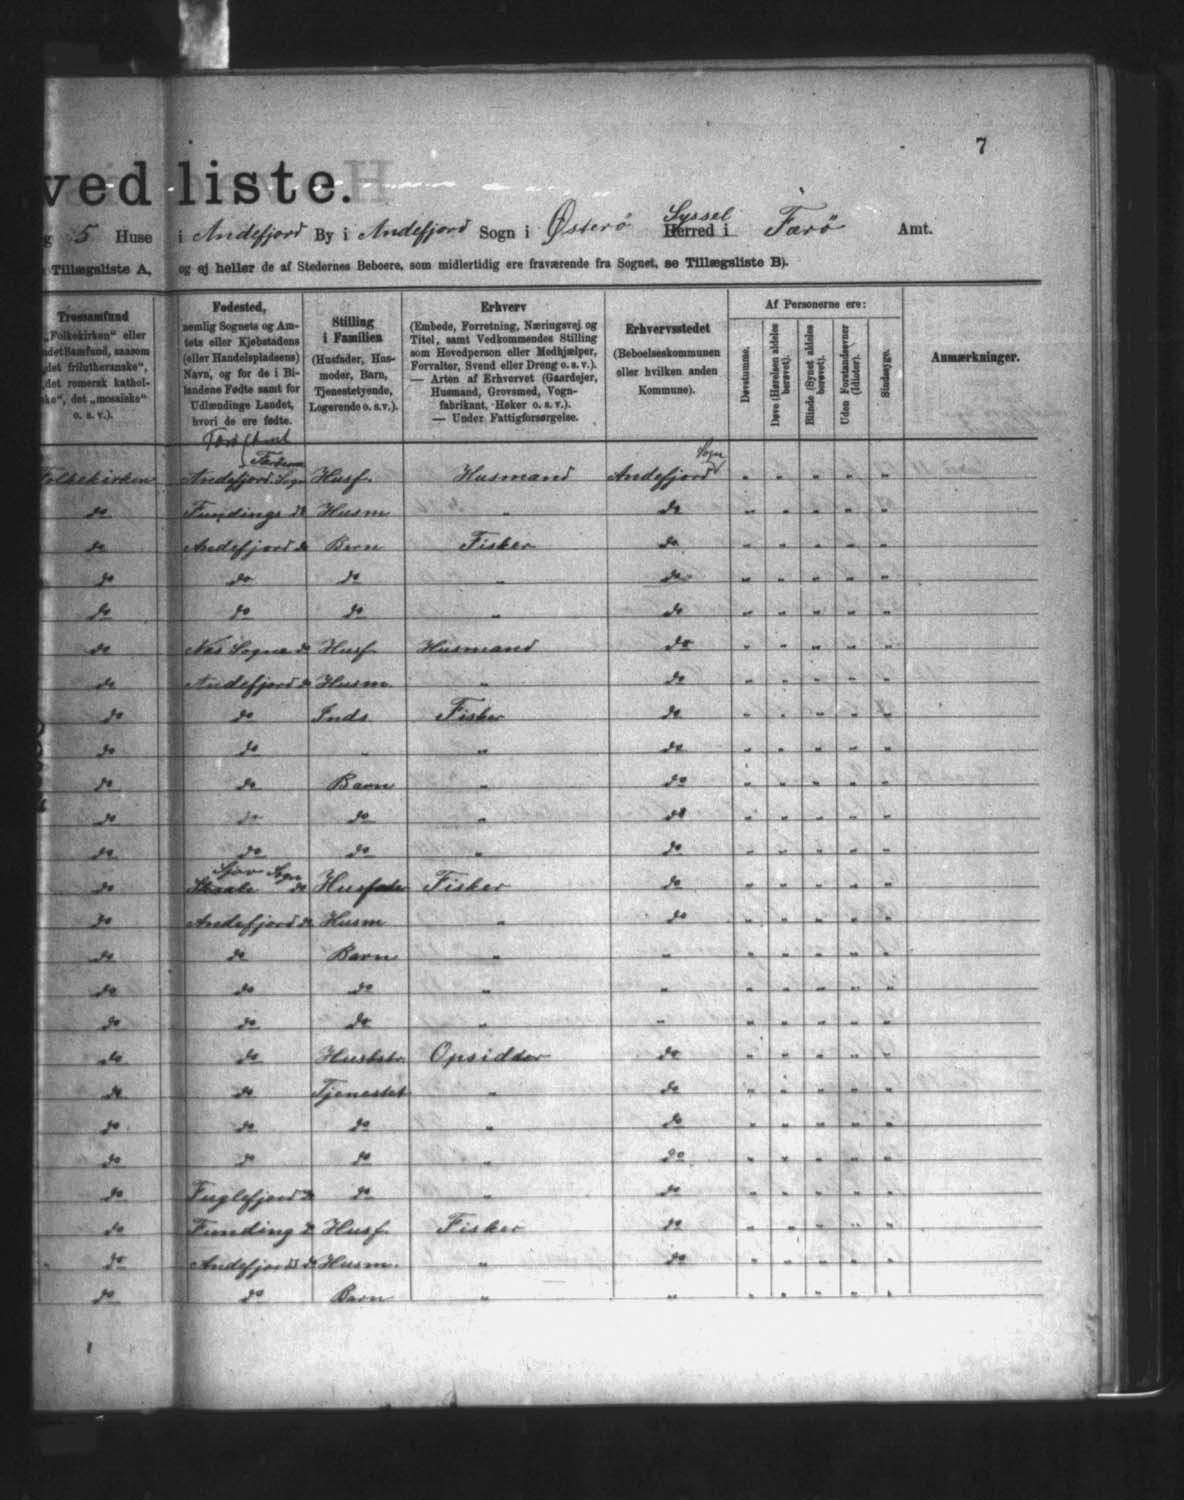 7
ved liste.
g 5 Huse i Andefjord By i Andefjord Sogn i Østerø Syssel Herred i Færø Amt.
Tillægsliste A, og ej heller de af Stedernes Beboere, som midlertidig ere fraværende fra Sognet, se Tillægsliste B).
Trossamfund
„Folkekirken“ eller
ndet Samfund, saasom
det frilutheranske“,
det romersk kathol-
ske“, det „mosaiske“
o. s. v.).
Fødested,
nemlig Sognets og Am-
tets eller Kjøbstadens
(eller Handelspladsens)
Navn, og for de i Bi-
landene Fødte samt for
Udlændinge Landet,
hvori de ere fødte.
Stilling
i Familien
(Husfader, Hus-
moder, Barn,
Tjenestetyende,
Logerende o. s. v.).
Erhverv
(Embede, Forretning, Næringsvej og
Titel, samt Vedkommendes Stilling
som Hovedperson eller Medhjælper,
Forvalter, Svend eller Dreng o. s. v.).
— Arten af Erhvervet (Gaardejer,
Husmand, Grovsmed, Vogn-
fabrikant, Høker o. s. v.).
— Under Fattigforsørgelse.
Erhvervsstedet
(Beboelseskommunen
eller hvilken anden
Kommune).
Af Personerne ere:
Døvstumme.
Døve (Hørelsen aldeles
berøvet).
Blinde (Synet aldeles
berøvet).
Uden Forstandsevner
(Idioter).
Sindssyge.
Anmærkninger.
Folkekirken Andefjord Sogn Husf. Husmand Andefjord Sogn " " " " "
do Fundings do Husm " do " " " " "
do Andefjord do Barn Fisker do " " " " "
do do do " do " " " " "
do do do " do " " " " "
do Næs Sogn do Husf. Husmand do " " " " "
do Andefjord do Husm. " do " " " " "
do do Inds Fisker do " " " " "
do do " " do " " " " "
do do Barn " do " " " " "
do do do " do " " " " "
do do do " do " " " " "
do Sjov Sogn do Husfader Fisker do " " " " "
do Andefjord do Husm " do " " " " "
do do Barn " " " " " " "
do do do " " " " " " "
do do do " " " " " " "
do do Opsidder do " " " " "
do do Tjenestet " do " " " " "
do do do " do " " " " "
do do do " do " " " " "
do Fuglefjord do do " do " " " " "
do Funding do Husf. Fisker do " " " " "
do Andefjord do Husm. " do " " " " "
do do Barn " " " " " " "